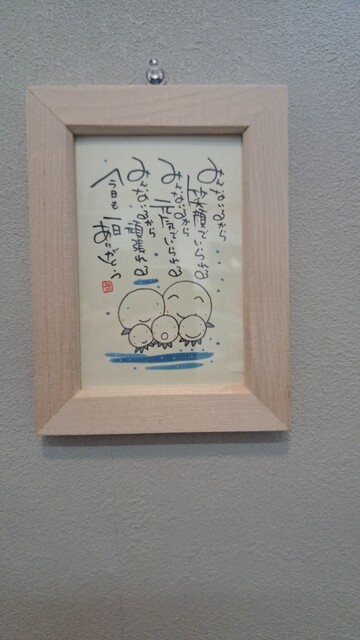 みんないるから
笑顔でいられる
みんないるから
元気でいられる
みんないるから
頑張れる
今日も一日ありがとう